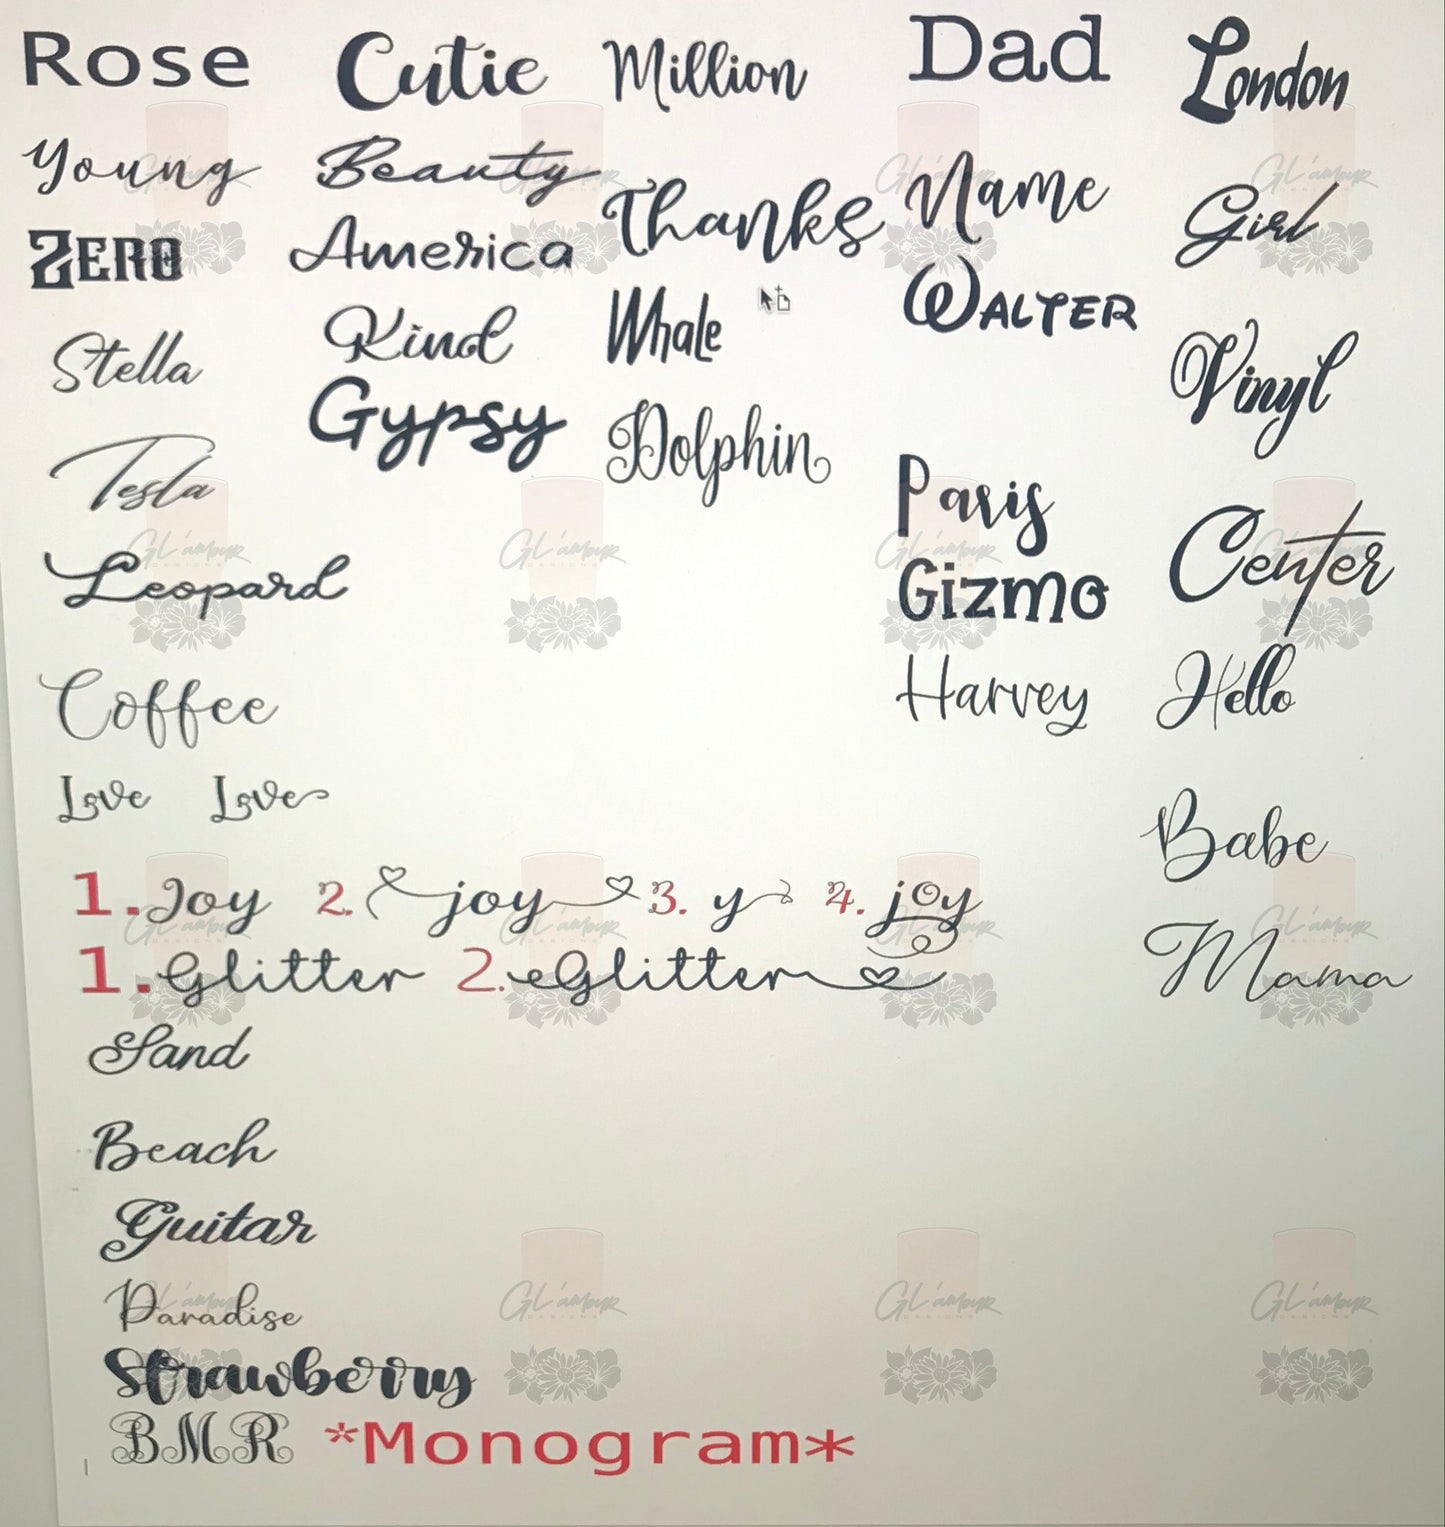 Rose
Young
ZERO
Stella
Tesla
Leopard
Coffee
Love Love
1. Joy 2. joy 3. y 4. joy
1. Glitter 2. Glitter
Sand
Beach
Guitar
Paradise
Strawberry
BMR *Monogram*
Cutie
Beauty
America
Kind
Gypsy
Million
Thanks
Whale
Dolphin
Dad
Name
WALTER
Paris
Gizmo
Harvey
London
Girl
Vinyl
Center
Hello
Babe
Mama
GL'amour
DESIGNS